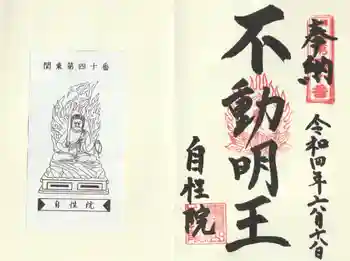 関東第四十番
自性院
奉納
不動明王
自性院
令和四年六月十八日